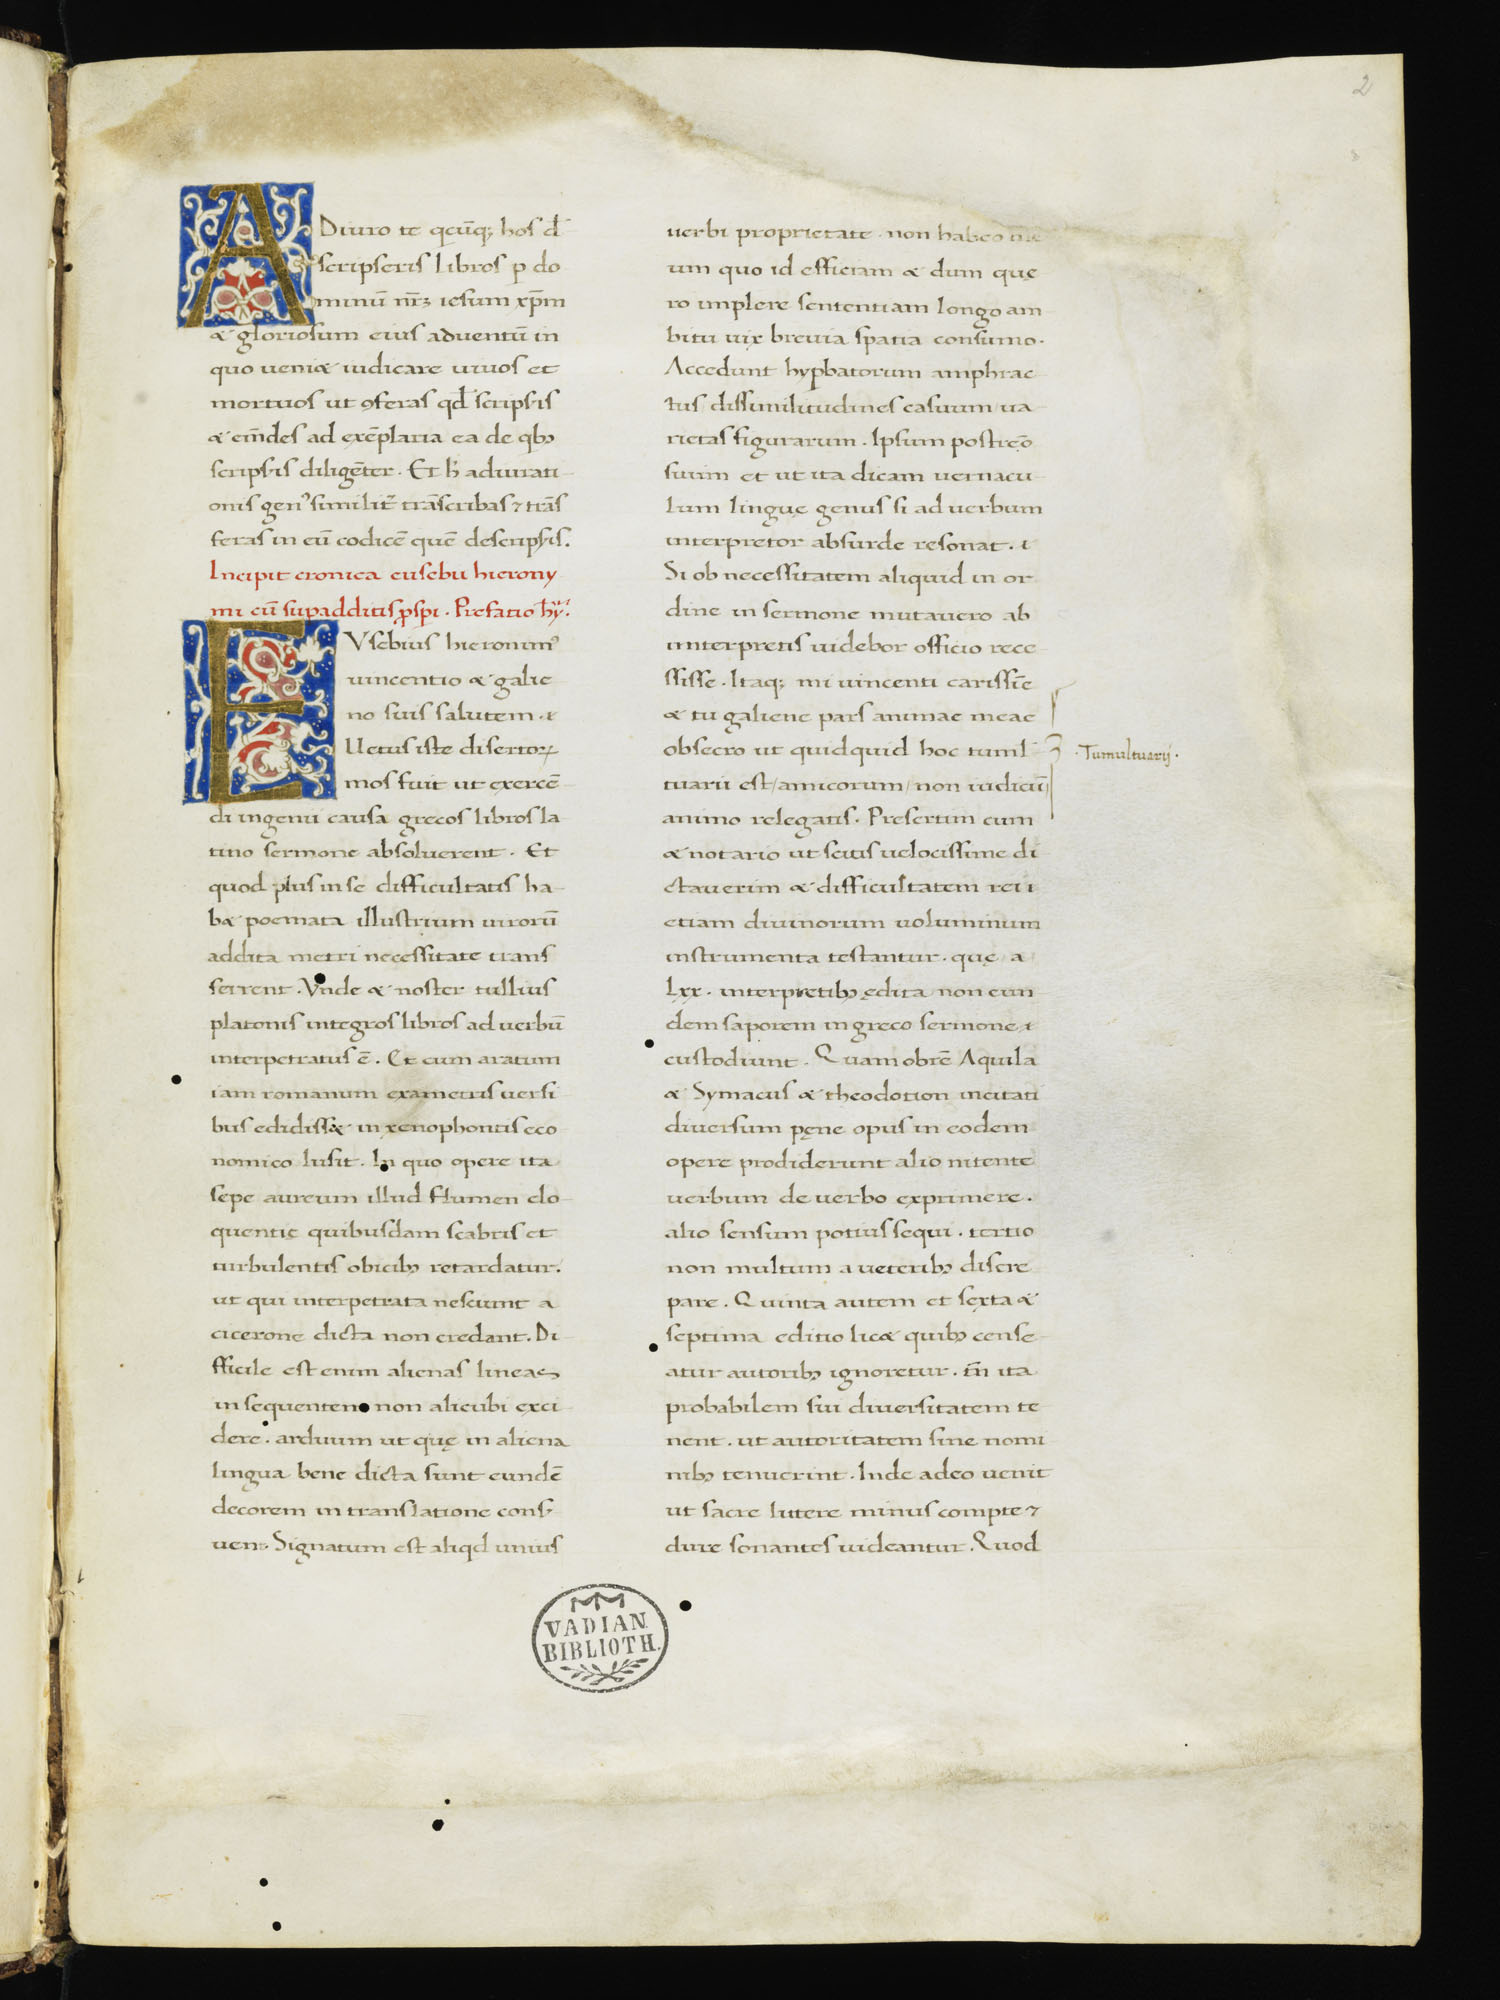 2
ADiuro te qcūq; hos d̄
scripseris libros p do
minū nr̄ꝫ iesum xp̄m
& gloriosum eius aduentū in
quo ueni& iudicare uiuos et
mortuos ut ꝯferas qd̄ scripsis
& em̄des ad exēplaria ea de qbꝫ
scripsis diligēter. Et h̄ adiurati
onis genꝰ similit̄ trāscribas ⁊ trās
feras in eū codicē quē descripsis.
Incipit cronica eusebii hierony
mi cū supadditis ꝓspi. Prefatio hy.
EVsebius hieronimꝰ
uincentio & galie
no suis salutem.
Uetus iste disertoꝝ
mos fuit ut exercē
di ingenii causa grecos libros la
tino sermone absoluerent. Et
quod plus in se difficultatis ha
b& poemata illustrium uirorū
addita metri necessitate trans
ferrent. Vnde & noster tullius
platonis integros libros ad uerbū
interpetratus ē. Et cum aratum
iam romanum exametris uersi
bus edidiss& in xenophontis eco
nomico lusit. In quo opere ita
sepe aureum illud flumen elo
quentie quibusdam scabris et
turbulentis obicibꝫ retardatur.
ut qui interpetrata nesciunt a
cicerone dicta non credant. Di
fficile est enim alienas lineas
in sequentem non alicubi exci
dere. arduum ut quę in aliena
lingua bene dicta sunt eundē
decorem in translatione cons
uenꝫ Signatum est aliqd unius
uerbi proprietate. non habeo me
um quo id efficiam & dum quę
ro implere sententiam longo am
bitu uix breuia spatia consumo.
Accedunt hypbatorum amphrac
tus/dissimilitudines casuum/ua
rietas figurarum. Ipsum postreō
suum et ut ita dicam uernacu
lum linguę genus si ad uerbum
interpretor absurde resonat.
Si ob necessitatem aliquid in or
dine in sermone mutauero ab
innterpretis uidebor officio rece
ssisse. Itaq; mi uincenti carissīe
& tu galiene pars animae meae
obsecro ut quidquid hoc tuml
tuarii est/amicorum/non iudicū
animo relegatis. Presertim cum
& notario ut scitis uelocissime di
ctauerim & difficultatem rei
etiam diuinorum uoluminum
instrumenta testantur. quę a
Lxx. interpretibꝫ ędita non eun
dem saporem in greco sermone
custodiunt. Quam obrē Aquila
& Symacus & theodotion incitati
diuersum pęne opus in eodem
opere prodiderunt alio nitente
uerbum de uerbo exprimere.
alio sensum potius sequi. tertio
non multum a ueteribꝫ discre
pare. Quinta autem et sexta &
septima editio lic& quibꝫ cense
atur autoribꝫ ignoretur. tn̄ ita
probabilem sui diuersitatem te
nent. ut autoritatem sine nomi
nibꝫ tenuerint. Inde adeo uenit
ut sacre luterę minus compte ⁊
dure sonantes uideantur. Quod
.Tumultuarij.
VADIAN.
BIBLIOTH.